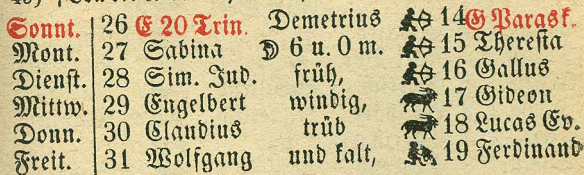 Sonnt. 26 E 20 Trin. Demetrius 14 G Parask.
Mont. 27 Sabina 6 u. 0 m. 15 Theresia
Dienst. 28 Sim. Jud. früh, 16 Gallus
Mittw. 29 Engelbert windig, 17 Gideon
Donn. 30 Claudius trüb 18 Lucas Ev.
Freit. 31 Wolfgang und kalt, 19 Ferdinand